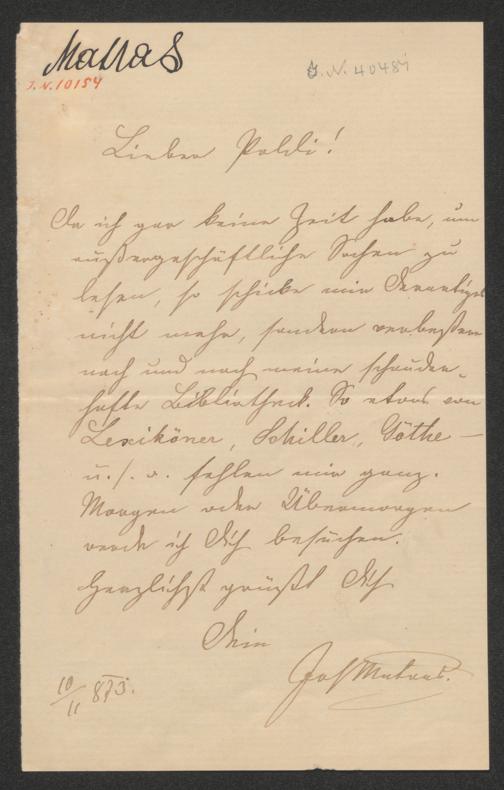 Matras
I.N. 10154
I.N. 40487
Lieber Poldi!
Da ich gar keine Zeit habe, um
außergeschäftliche Sachen zu
lesen, so schicke mir Derartiges
nicht mehr, sondern verbeßere
nach und nach meine schauder-
hafte Bibliotheck. So etwas von
Lexiköner, Schiller, Göthe —
u. s. w. fehlen mir ganz.
Morgen oder Übermorgen
werde ich Dich besuchen.
Herzlichst grüßt Dich
Dein
Jos Matras.
10/11 873.